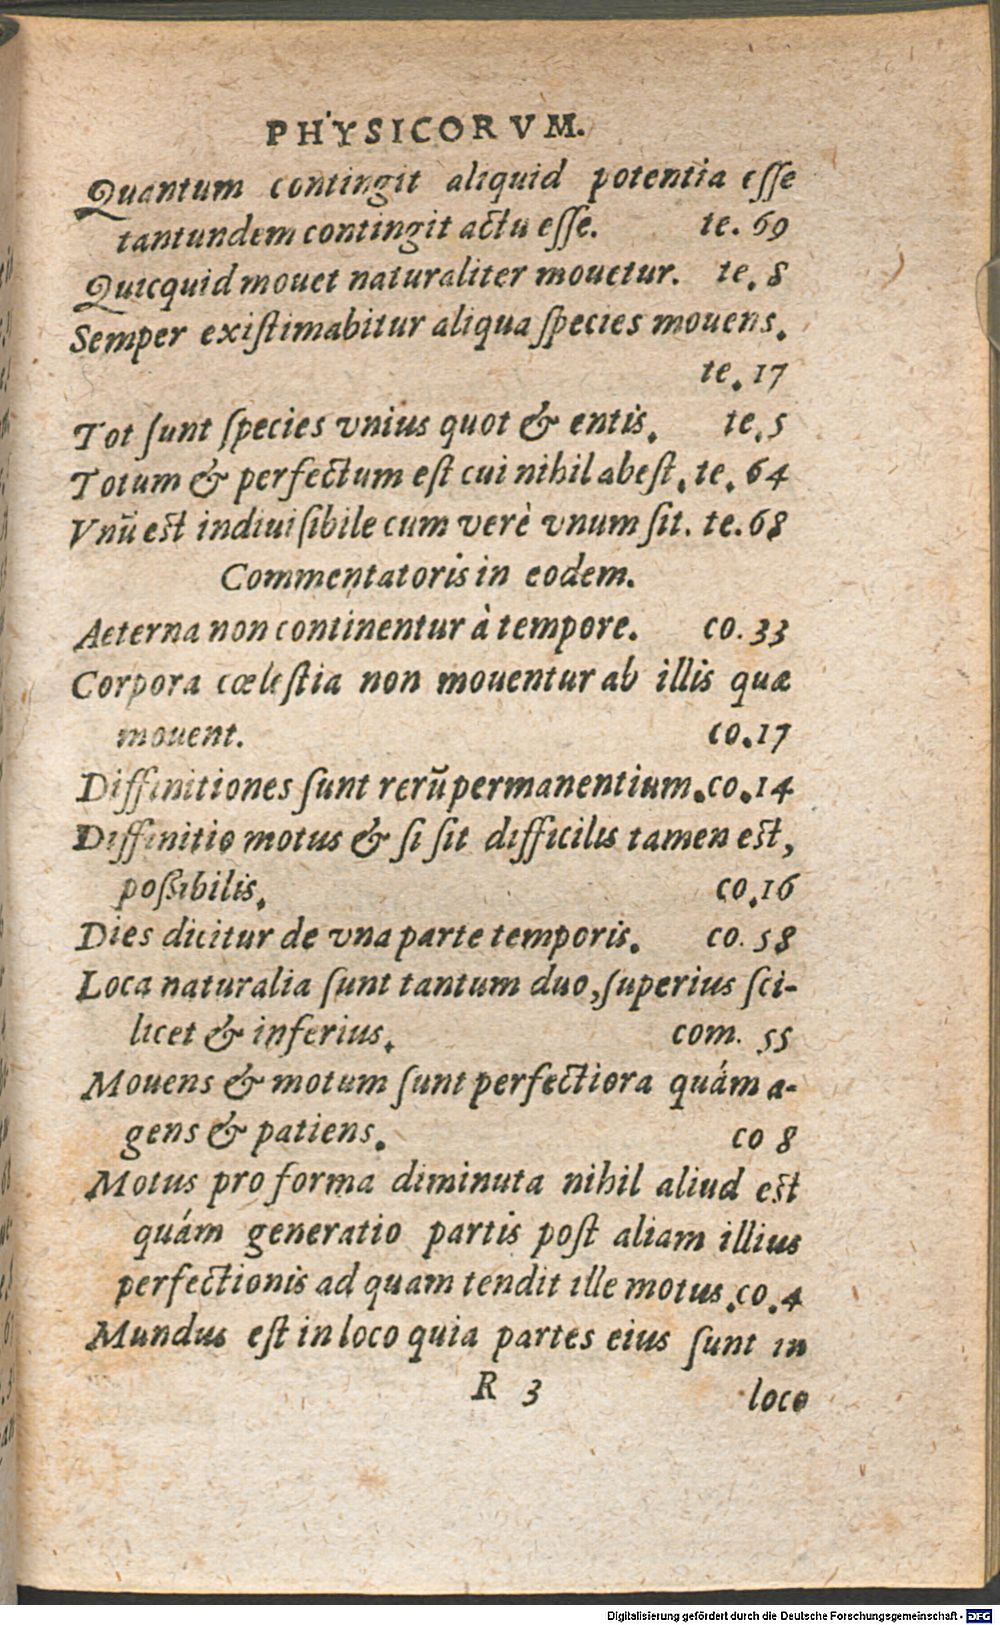 PHYSICORVM.
Quantum contingit aliquid potentia eſſe
tantundem contingit actu eſſe. te. 69
Quicquid mouet naturaliter mouetur. te. 8
Semper exiſtimabitur aliqua ſpecies mouens.
te. 17
Tot ſunt ſpecies vnius quot & entis. te. 5
Totum & perfectum eſt cui nihil abeſt. te. 64
Vnū est indiuiſibile cum verè vnum ſit. te. 68
Commentatoris in eodem.
Aeterna non continentur à tempore. co. 33
Corpora cœleſtia non mouentur ab illis quæ
mouent. co. 17
Diffinitiones ſunt rerū permanentium. co. 14
Diffinitio motus & ſi ſit difficilis tamen est,
poßibilis. co. 16
Dies dicitur de vna parte temporis. co. 58
Loca naturalia ſunt tantum duo, ſuperius ſci-
licet & inferius. com. 55
Mouens & motum ſunt perfectiora quám a-
gens & patiens. co 8
Motus pro forma diminuta nihil aliud est
quám generatio partis poſt aliam illius
perfectionis ad quam tendit ille motus. co. 4
Mundus eſt in loco quia partes eius ſunt in
R 3 loco
Digitalisierung gefördert durch die Deutsche Forschungsgemeinschaft - DFG